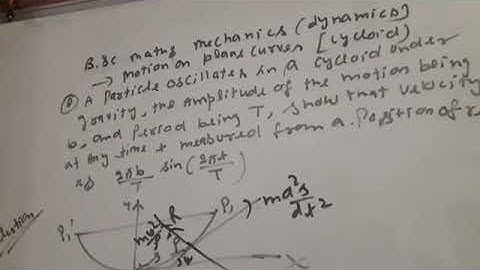 B.Sc maths mechanics (dynamics)
→ motion on plane curves [cycloid]
A Particle oscillates in a cycloid under
gravity, the amplitude of the motion being
b, and Period being T, show that velocity
at any time t measured from a Position of r
is 2πb/T sin(2πt/T)
P₁' R P₁ md²s/dt²
X